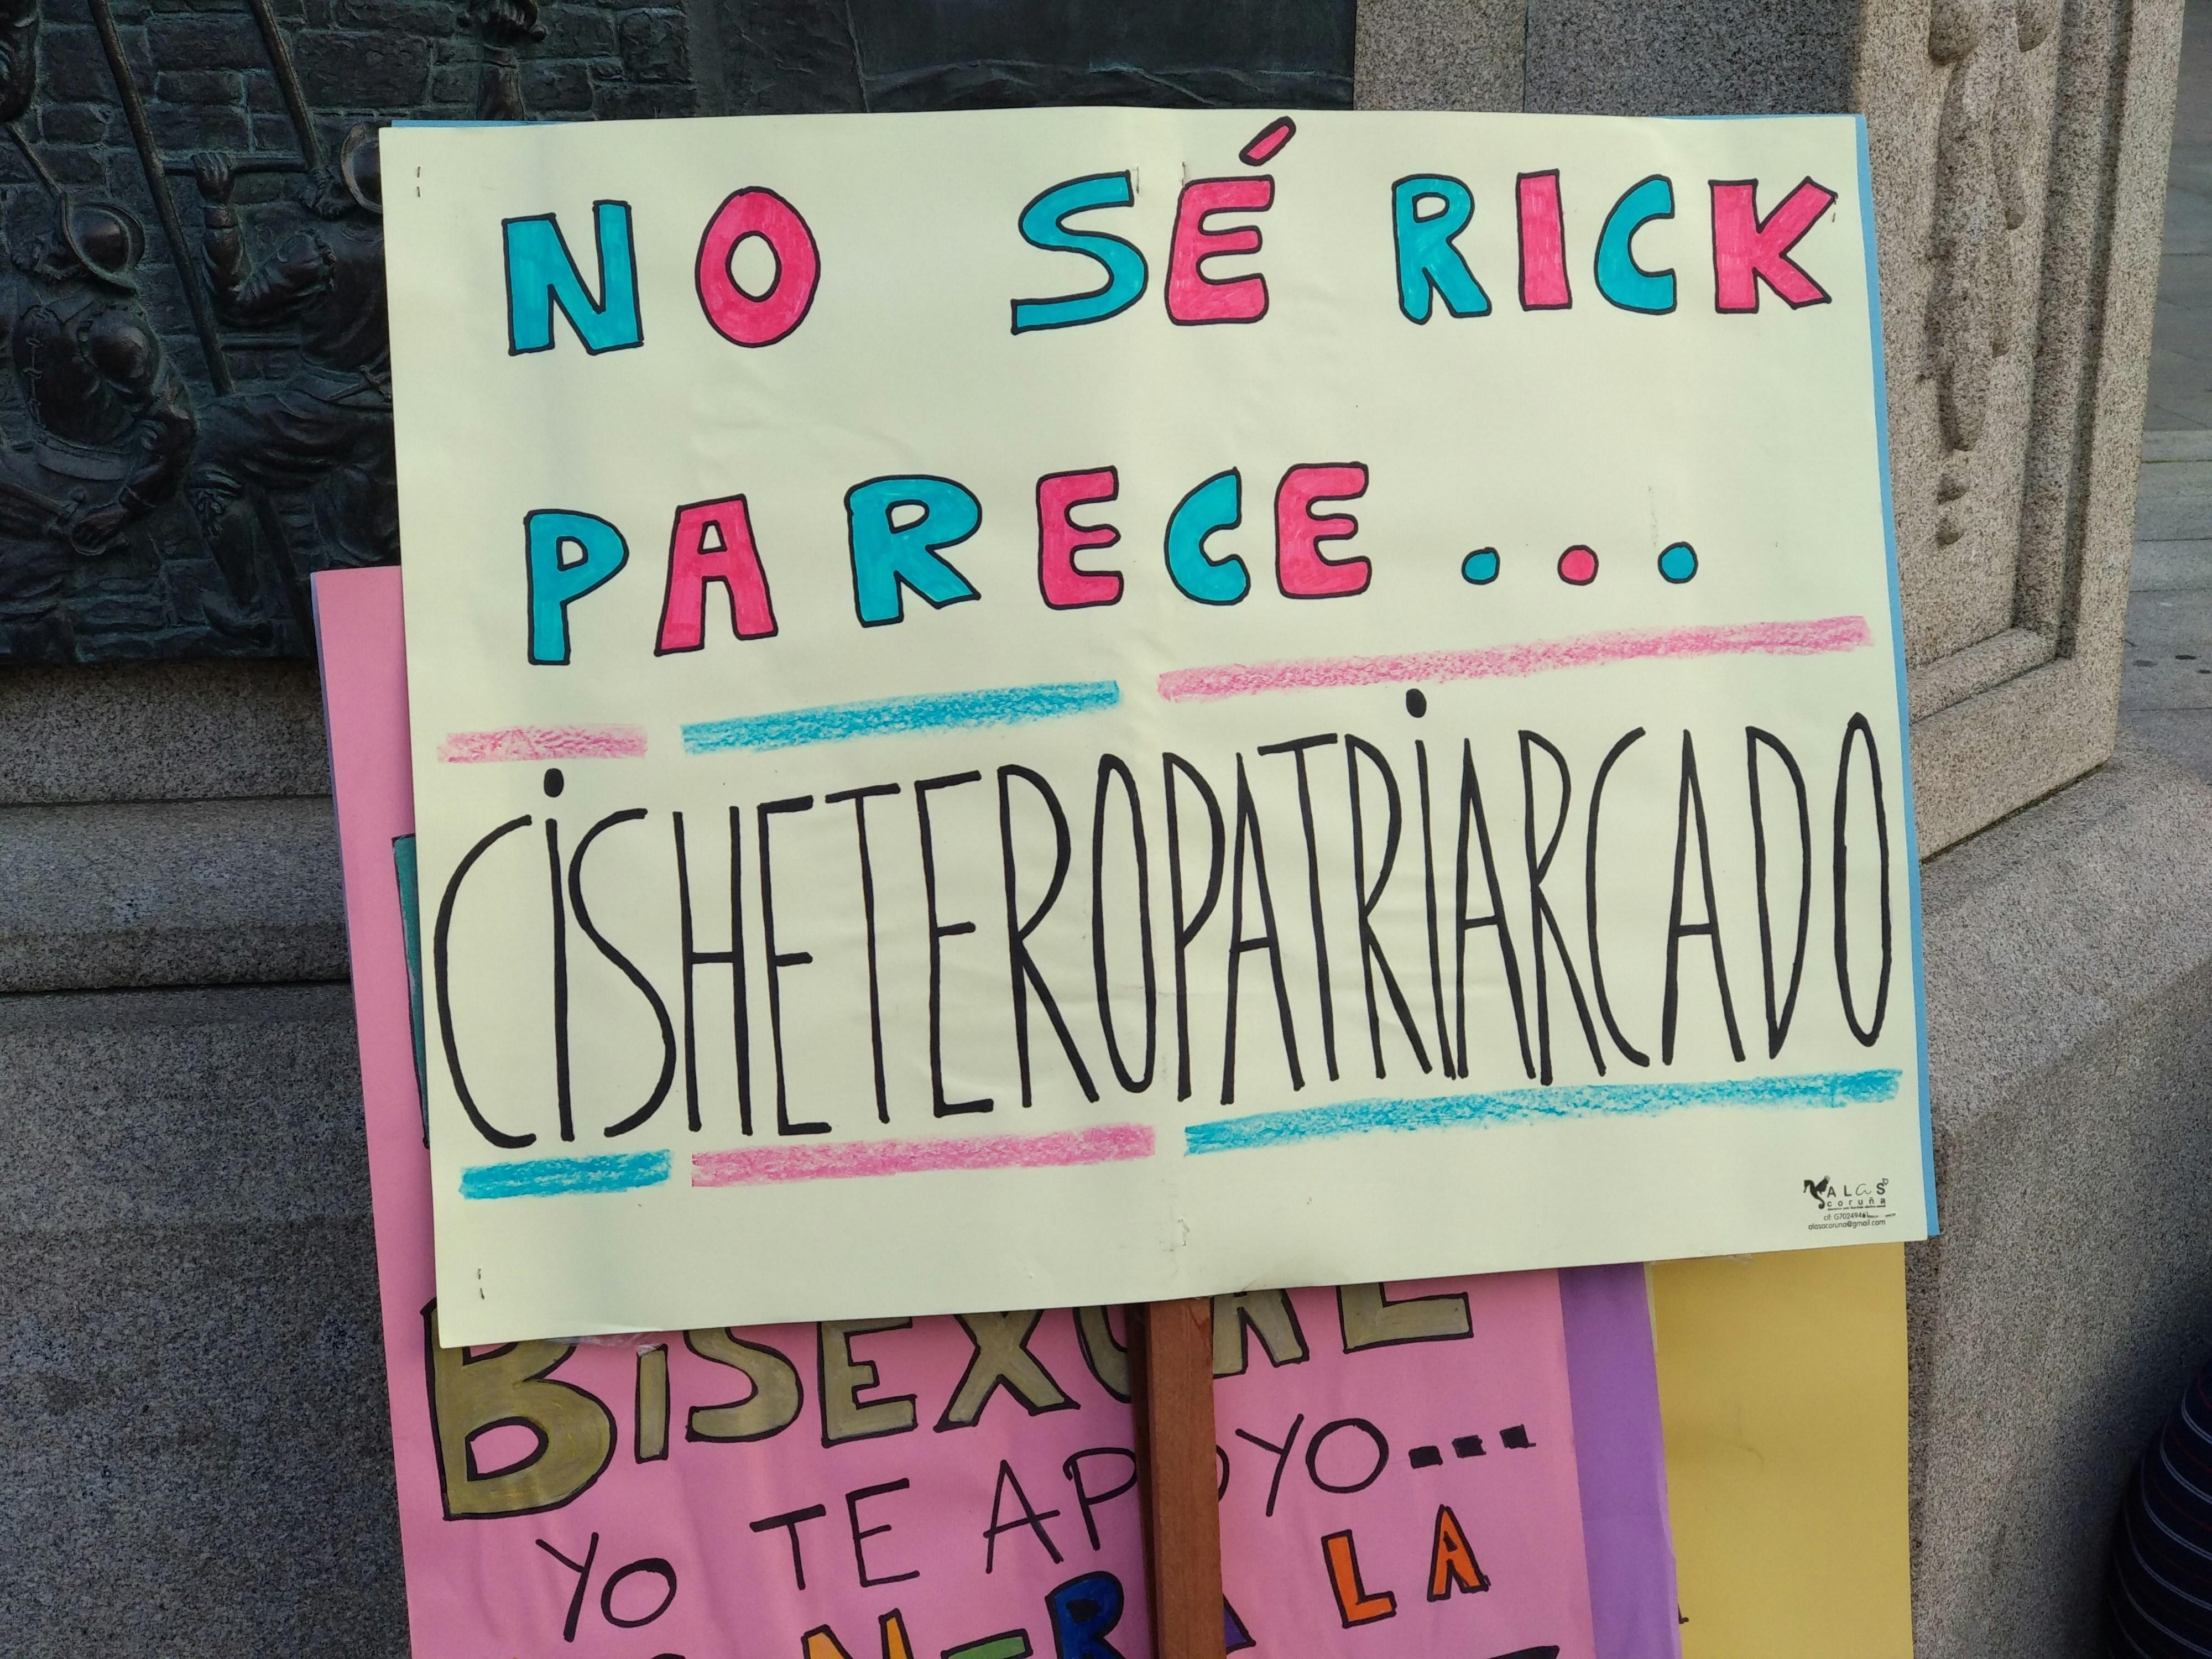 NO SÉ RICK
PARECE...
CISHETEROPATRIARCADO
ALAS
coruña
alascoruna@gmail.com
BISEXUAL
YO TE APOYO...
LA